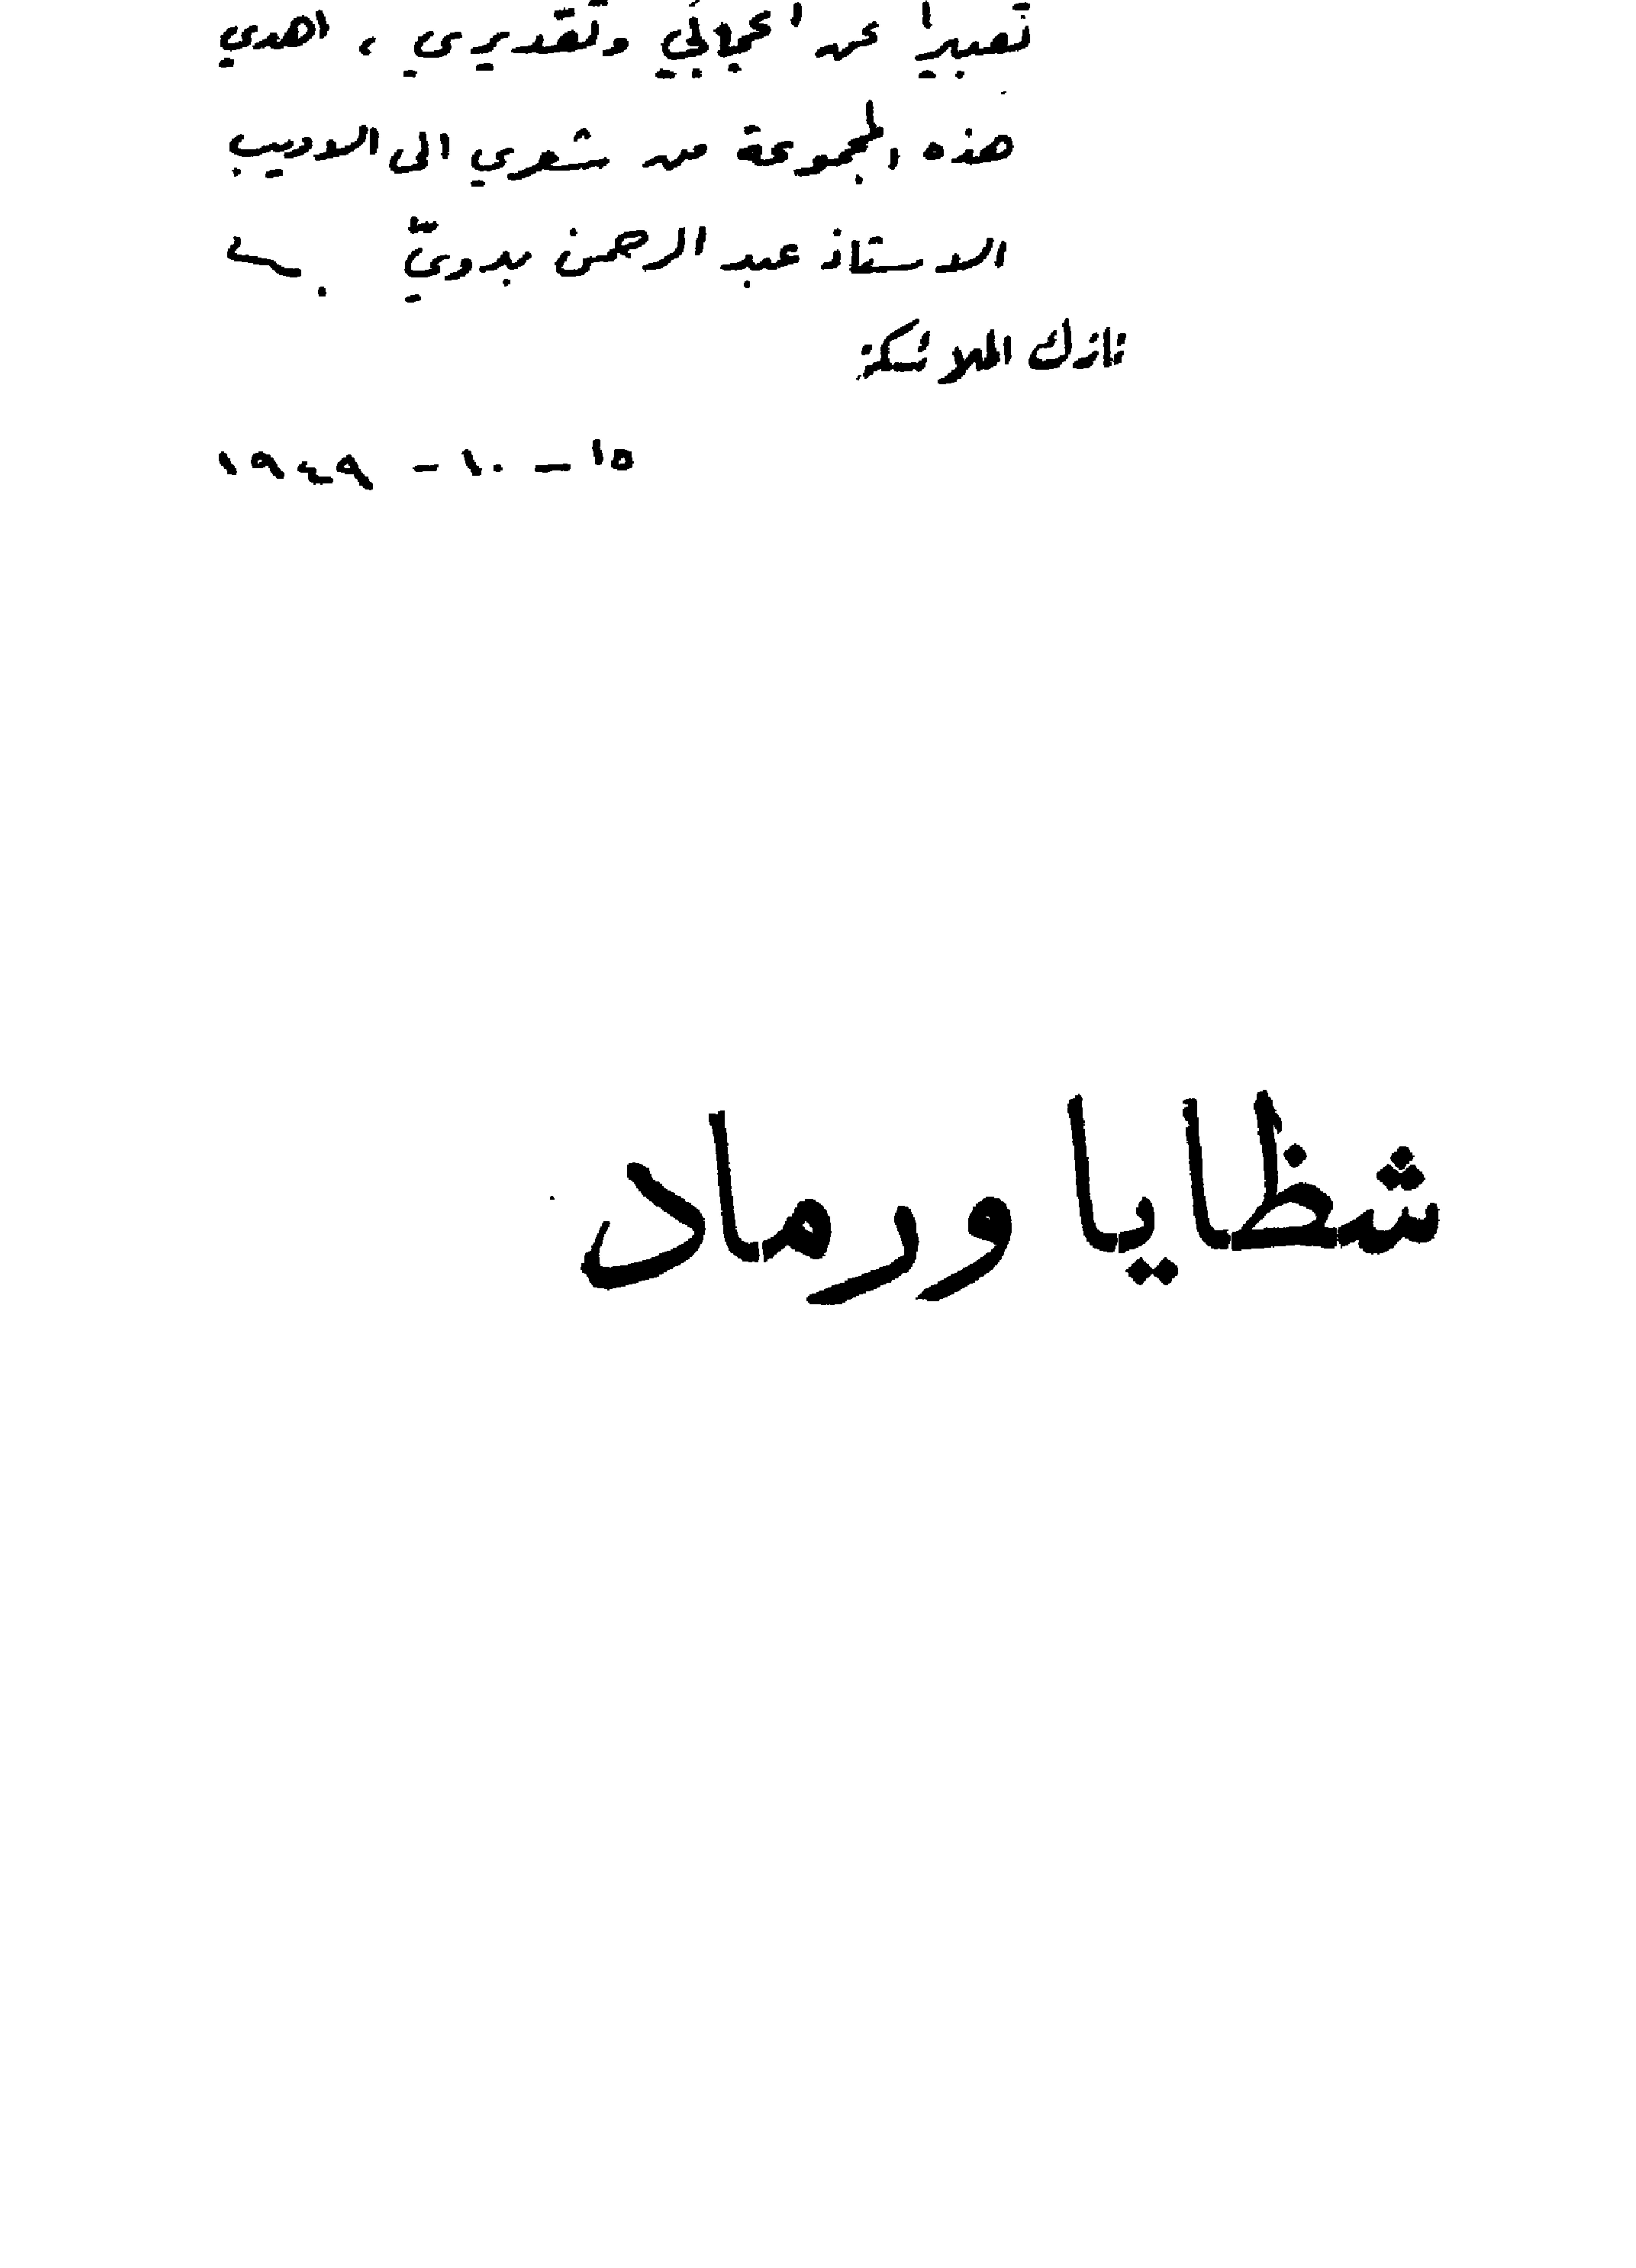 تعبيرا عن اعجابي وتقديري ، اهدي
هذه المجموعة من شعري الى الاديب
الاستاذ عبد الرحمن بدويّ
نازك الملائكة
١٥ - ١٠ - ١٩٤٩
شظايا ورماد